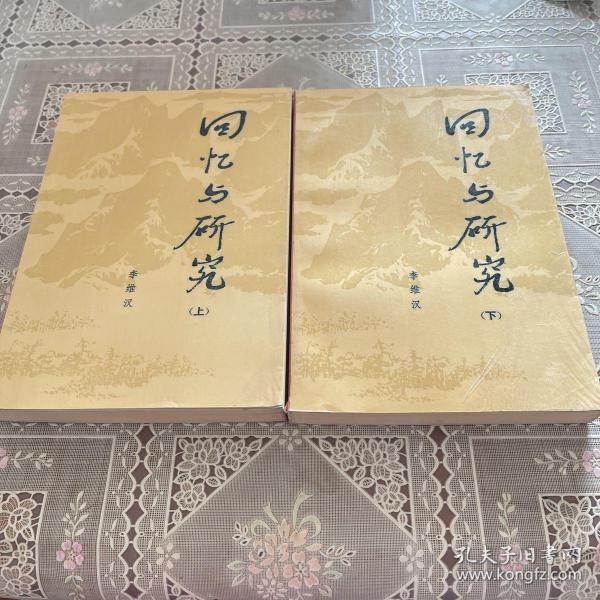 回忆与研究
李维汉
（上）
回忆与研究
李维汉
（下）
孔夫子旧书网
www.kongfz.com